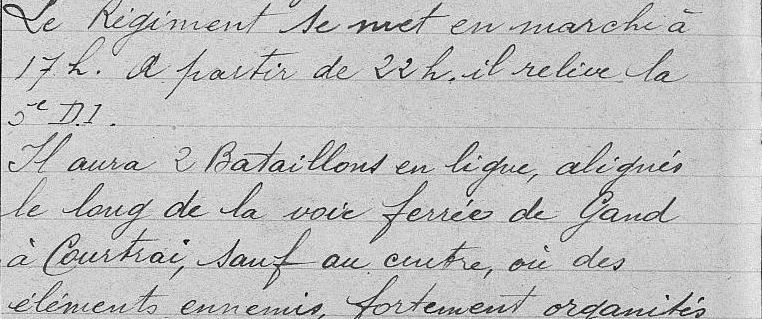 Le Régiment se met en marche à
17 h. A partir de 22 h. il relève la
5e D.I.
Il aura 2 Bataillons en ligne, alignés
le long de la voie ferrée de Gand
à Courtrai, sauf au centre, où des
éléments ennemis, fortement organisés